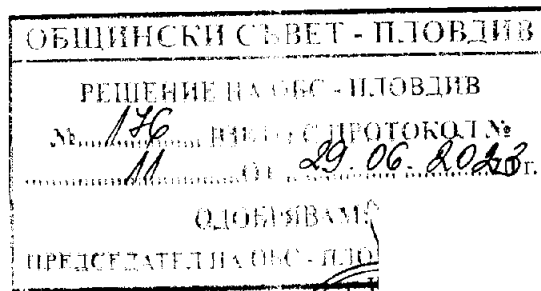 ОБЩИНСКИ СЪВЕТ - ПЛОВДИВ
РЕШЕНИЕ НА ОБС - ПЛОВДИВ
№ 176 ВЗЕТО С ПРОТОКОЛ №
11 ОТ 29.06.2023 г.
ОДОБРЯВАМ:
ПРЕДСЕДАТЕЛ НА ОБС - ПЛО